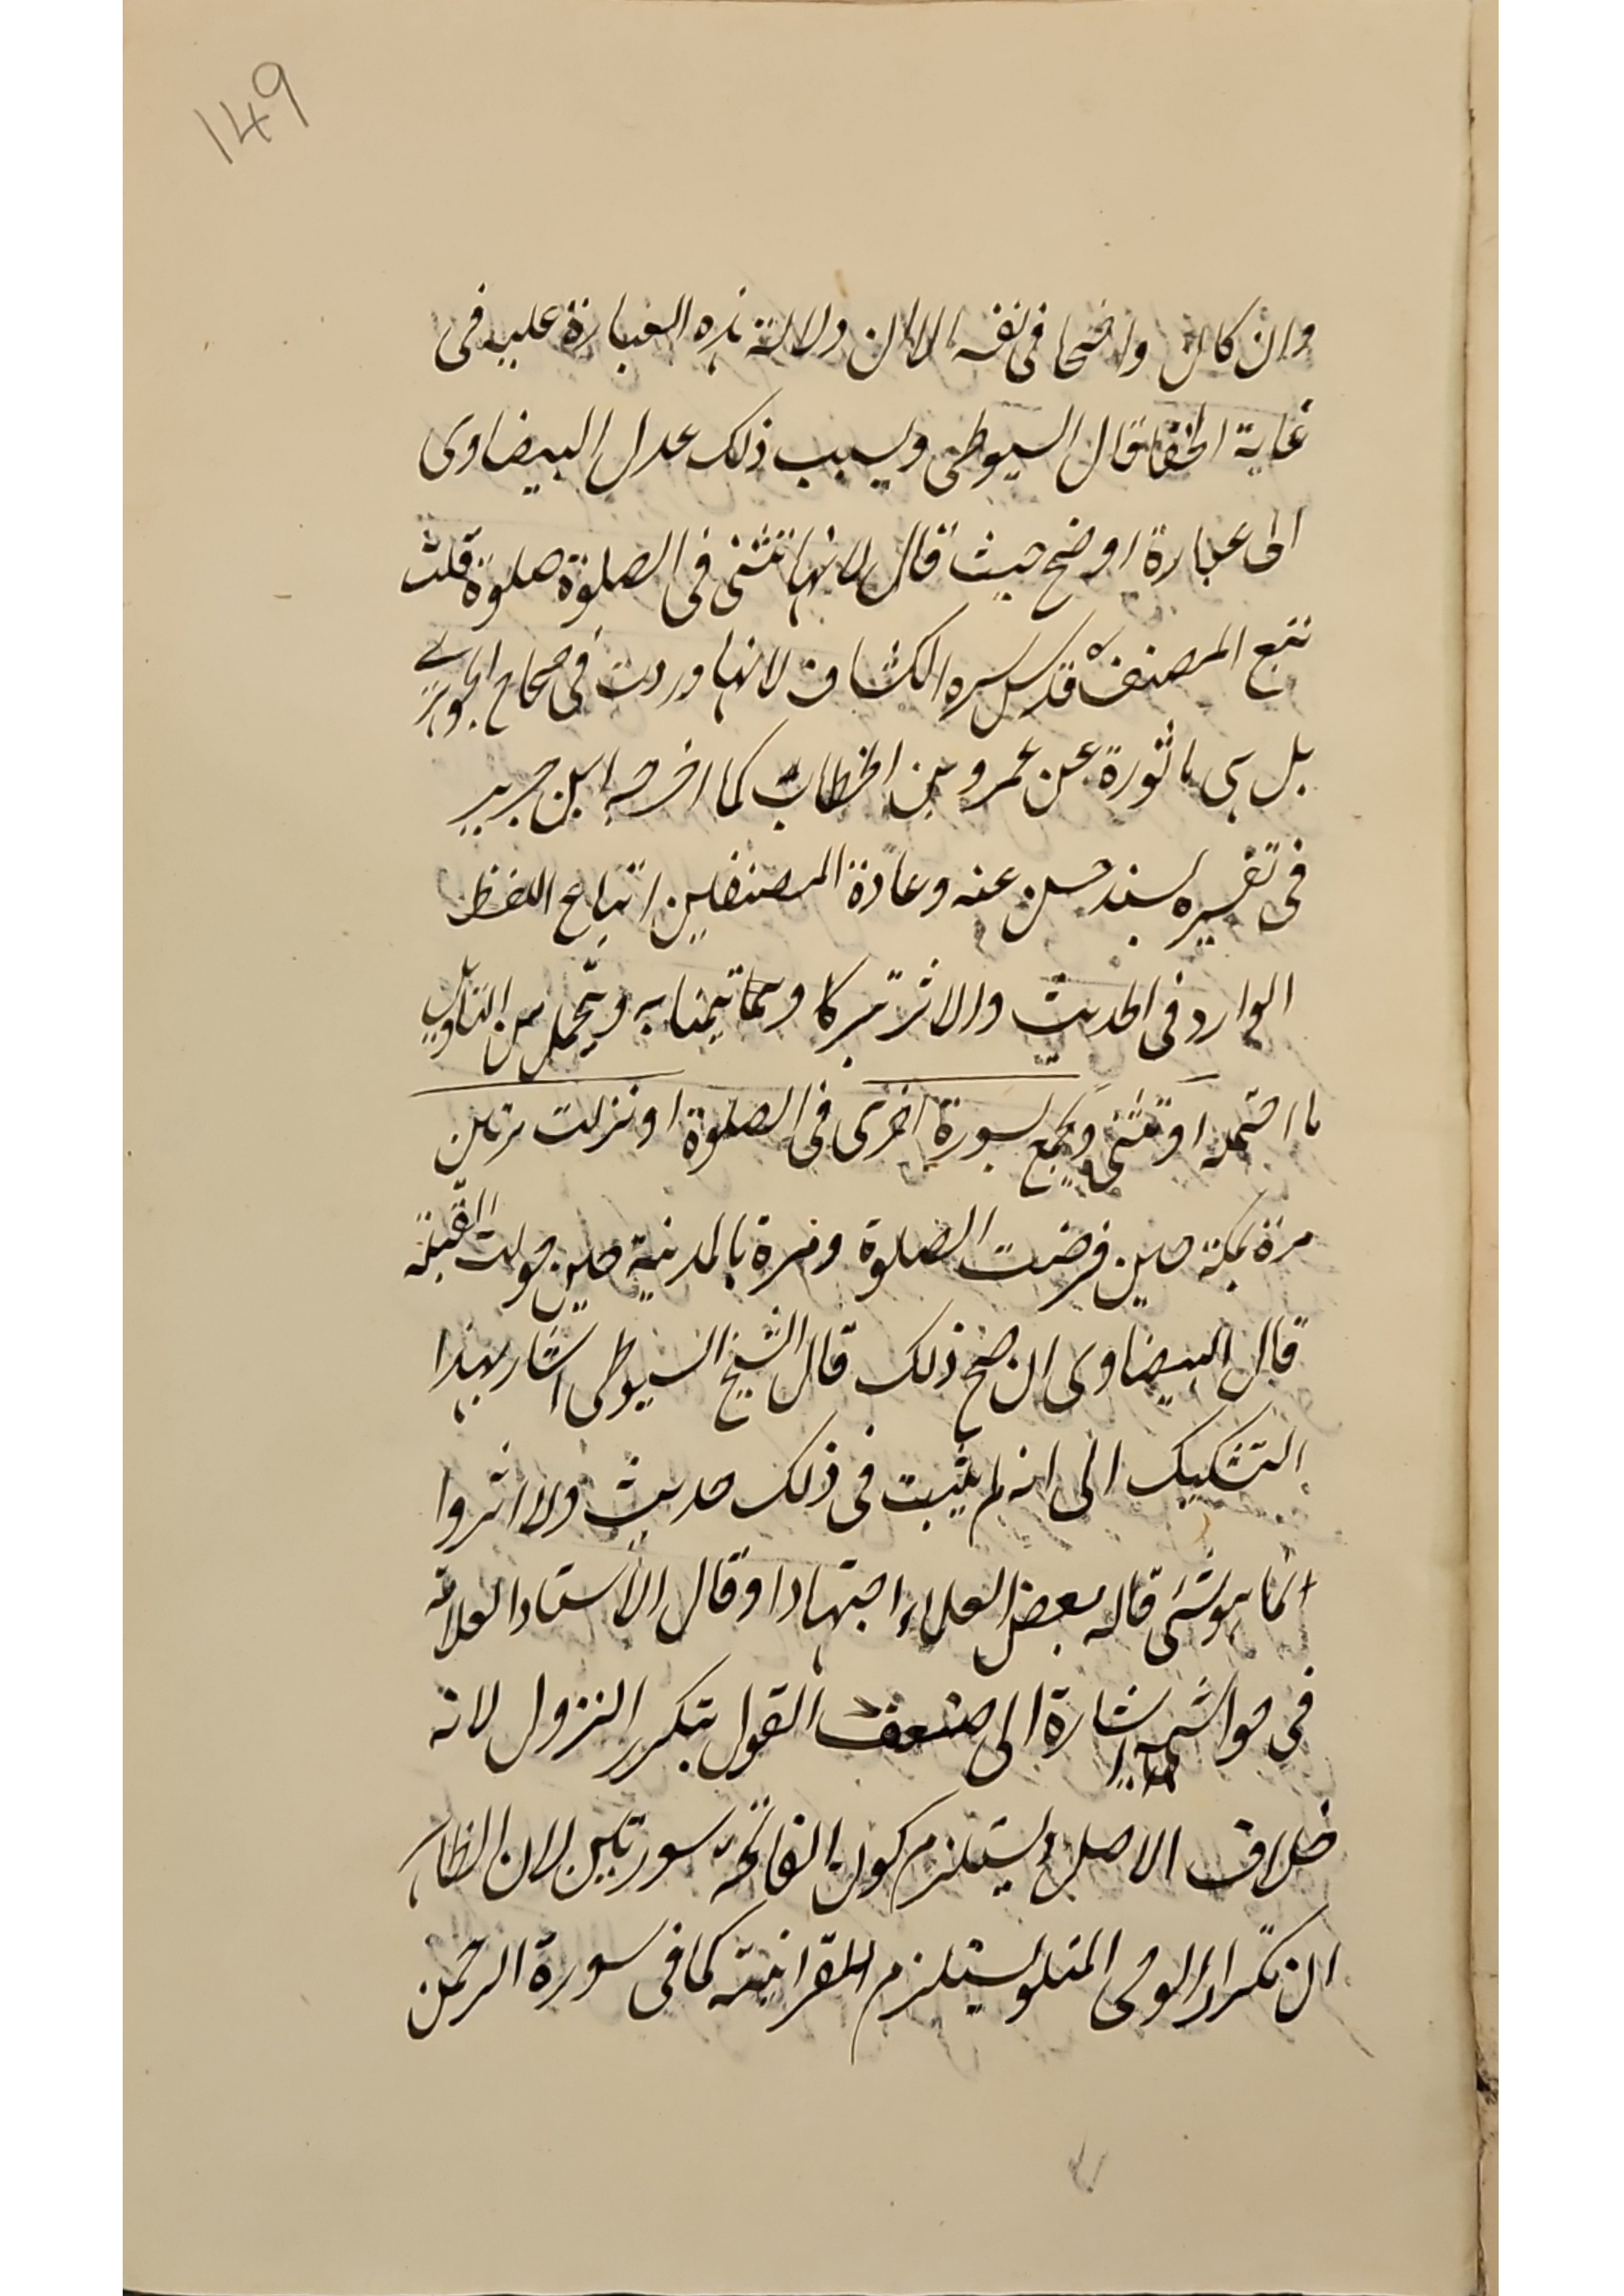 149
وان كان واضحا فى نفسه الا ان دلالة هذه العبارة عليه فى
غاية الخفا قال السيوطى وبسبب ذلك عدل البيضاوى
الى عبارة اوضح حيث قال لانها تثنى فى الصلوة صلوة قلت
تتبع المصنف قدس سره الكشاف لانها وردت فى صحاح الجوهرى
بل هى ماثورة عن عمرو بن الخطاب كما اخرجه ابن جرير
فى تفسيره بسند حسن عنه وعادة المصنفين اتباع اللفظ
الوارد فى الحديث والاثر تبركا وتيمنا به ويتحمل من التاويل
ما احتمله او تثنى ويجمع بسورة اخرى فى الصلوة او نزلت مرتين
مرة بمكة حين فرضت الصلوة ومرة بالمدينة حين حولت القبلة
قال البيضاوى ان صح ذلك قال الشيخ السيوطى اشار بهذا
التشكيك الى انه لم يثبت فى ذلك حديث ولا اثر وا
انما هو شئ قاله بعض العلماء اجتهادا وقال الاستاد العلامة
فى حواشيه اشارة الى ضعف القول بتكرر النزول لانه
خلاف الاصل ويستلزم كون الفاتحة سورتين لان الظاهر
ان تكرار الوحى المتلو يستلزم القرانية كما فى سورة الرحمن